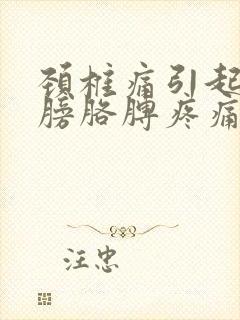 颈椎痛引起
膀胳脾疼痛
汪忠